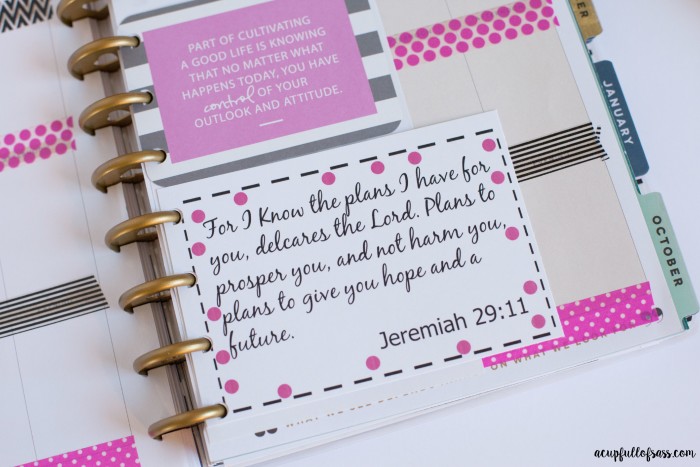 PART OF CULTIVATING
A GOOD LIFE IS KNOWING
THAT NO MATTER WHAT
HAPPENS TODAY, YOU HAVE
control OF YOUR
OUTLOOK AND ATTITUDE.
For I Know the plans I have for
you, delcares the Lord. Plans to
prosper you, and not harm you,
plans to give you hope and a
future.
Jeremiah 29:11
JANUARY
OCTOBER
acupfullofsass.com